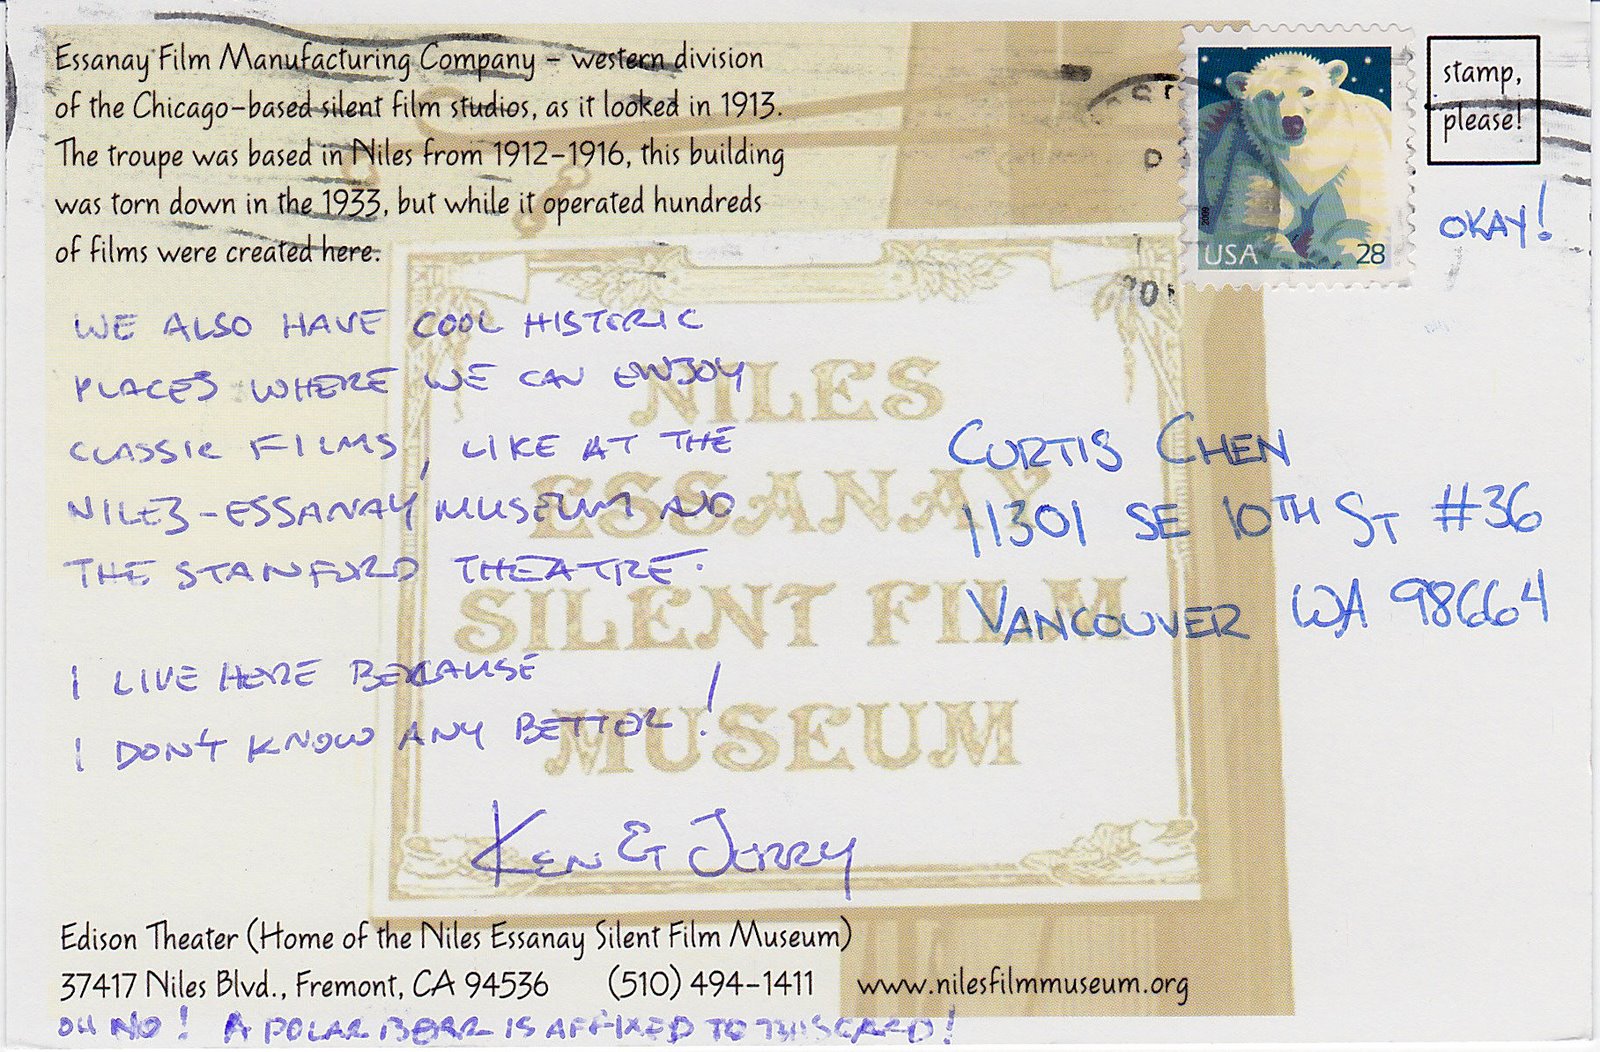 Essanay Film Manufacturing Company – western division
of the Chicago-based silent film studios, as it looked in 1913.
The troupe was based in Niles from 1912-1916, this building
was torn down in the 1933, but while it operated hundreds
of films were created here.
USA 28
2009
stamp,
please!
OKAY!
WE ALSO HAVE COOL HISTORIC
PLACES WHERE WE CAN ENJOY
CLASSIC FILMS, LIKE AT THE
NILES-ESSANAY MUSEUM AND
THE STANFORD THEATRE.
I LIVE HERE BECAUSE
I DON'T KNOW ANY BETTER!
KEN & JERRY
CURTIS CHEN
11301 SE 10TH ST #36
VANCOUVER WA 98664
NILES
ESSANAY
SILENT FILM
MUSEUM
Edison Theater (Home of the Niles Essanay Silent Film Museum)
37417 Niles Blvd., Fremont, CA 94536 (510) 494-1411 www.nilesfilmmuseum.org
OH NO! A POLAR BEAR IS AFFIXED TO THIS CARD!